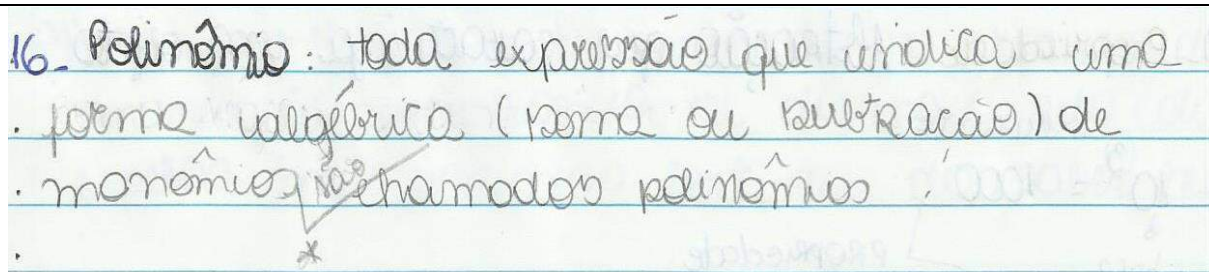 16- Polinômio: toda expressão que indica uma
. forma algébrica (soma ou subtração) de
. monômios são chamados polinômios.
.
*